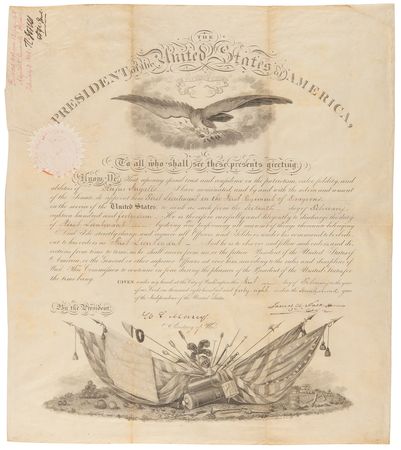 THE
PRESIDENT of the United States of AMERICA,
To all who shall see these presents greeting:
Know Ye, That reposing special trust and confidence in the patriotism, valor, fidelity, and
abilities of Rufus Ingalls I have nominated, and by and with the advice and consent
of the Senate, do appoint him First Lieutenant in the First Regiment of Dragoons
in the service of the United States: to rank as such from the sixteenth day of February
eighteen hundred and forty seven. He is therefore carefully and diligently to discharge the duty
of First Lieutenant by doing and performing all manner of things thereunto belonging.
And I do strictly charge, and require all Officers and Soldiers under his command to be obedi-
ent to his orders as First Lieutenant. And he is to observe and follow such orders, and di-
rections, from time to time, as he shall receive from me, or the future President of the United States of
America, or the General or other superior Officers set over him, according to the rules and discipline of
War. This Commission to continue in force during the pleasure of the President of the United States, for
the time being.
GIVEN under my hand, at the City of Washington, this day of February in the year
of our Lord, one thousand eight hundred and forty eight and in the Seventy second year
of the Independence of the United States.
By the President,
James K. Polk
W. L. Marcy
Secretary of War